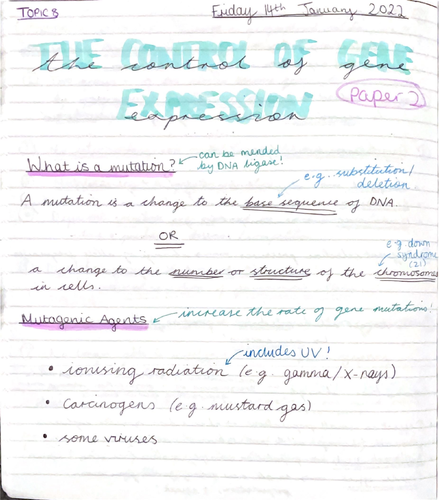 TOPIC 8
Friday 14th January 2022
THE CONTROL OF GENE
the control of gene
EXPRESSION
expression
Paper 2
What is a mutation?
can be mended
by DNA ligase!
e.g. substitution/
deletion
A mutation is a change to the base sequence of DNA.
OR
e.g down
syndrome
(21)
a change to the number or structure of the chromosomes
in cells.
Mutagenic Agents
increase the rate of gene mutations!
includes UV!
• ionising radiation (e.g. gamma/x-rays)
• carcinogens (e.g. mustard gas)
• some viruses